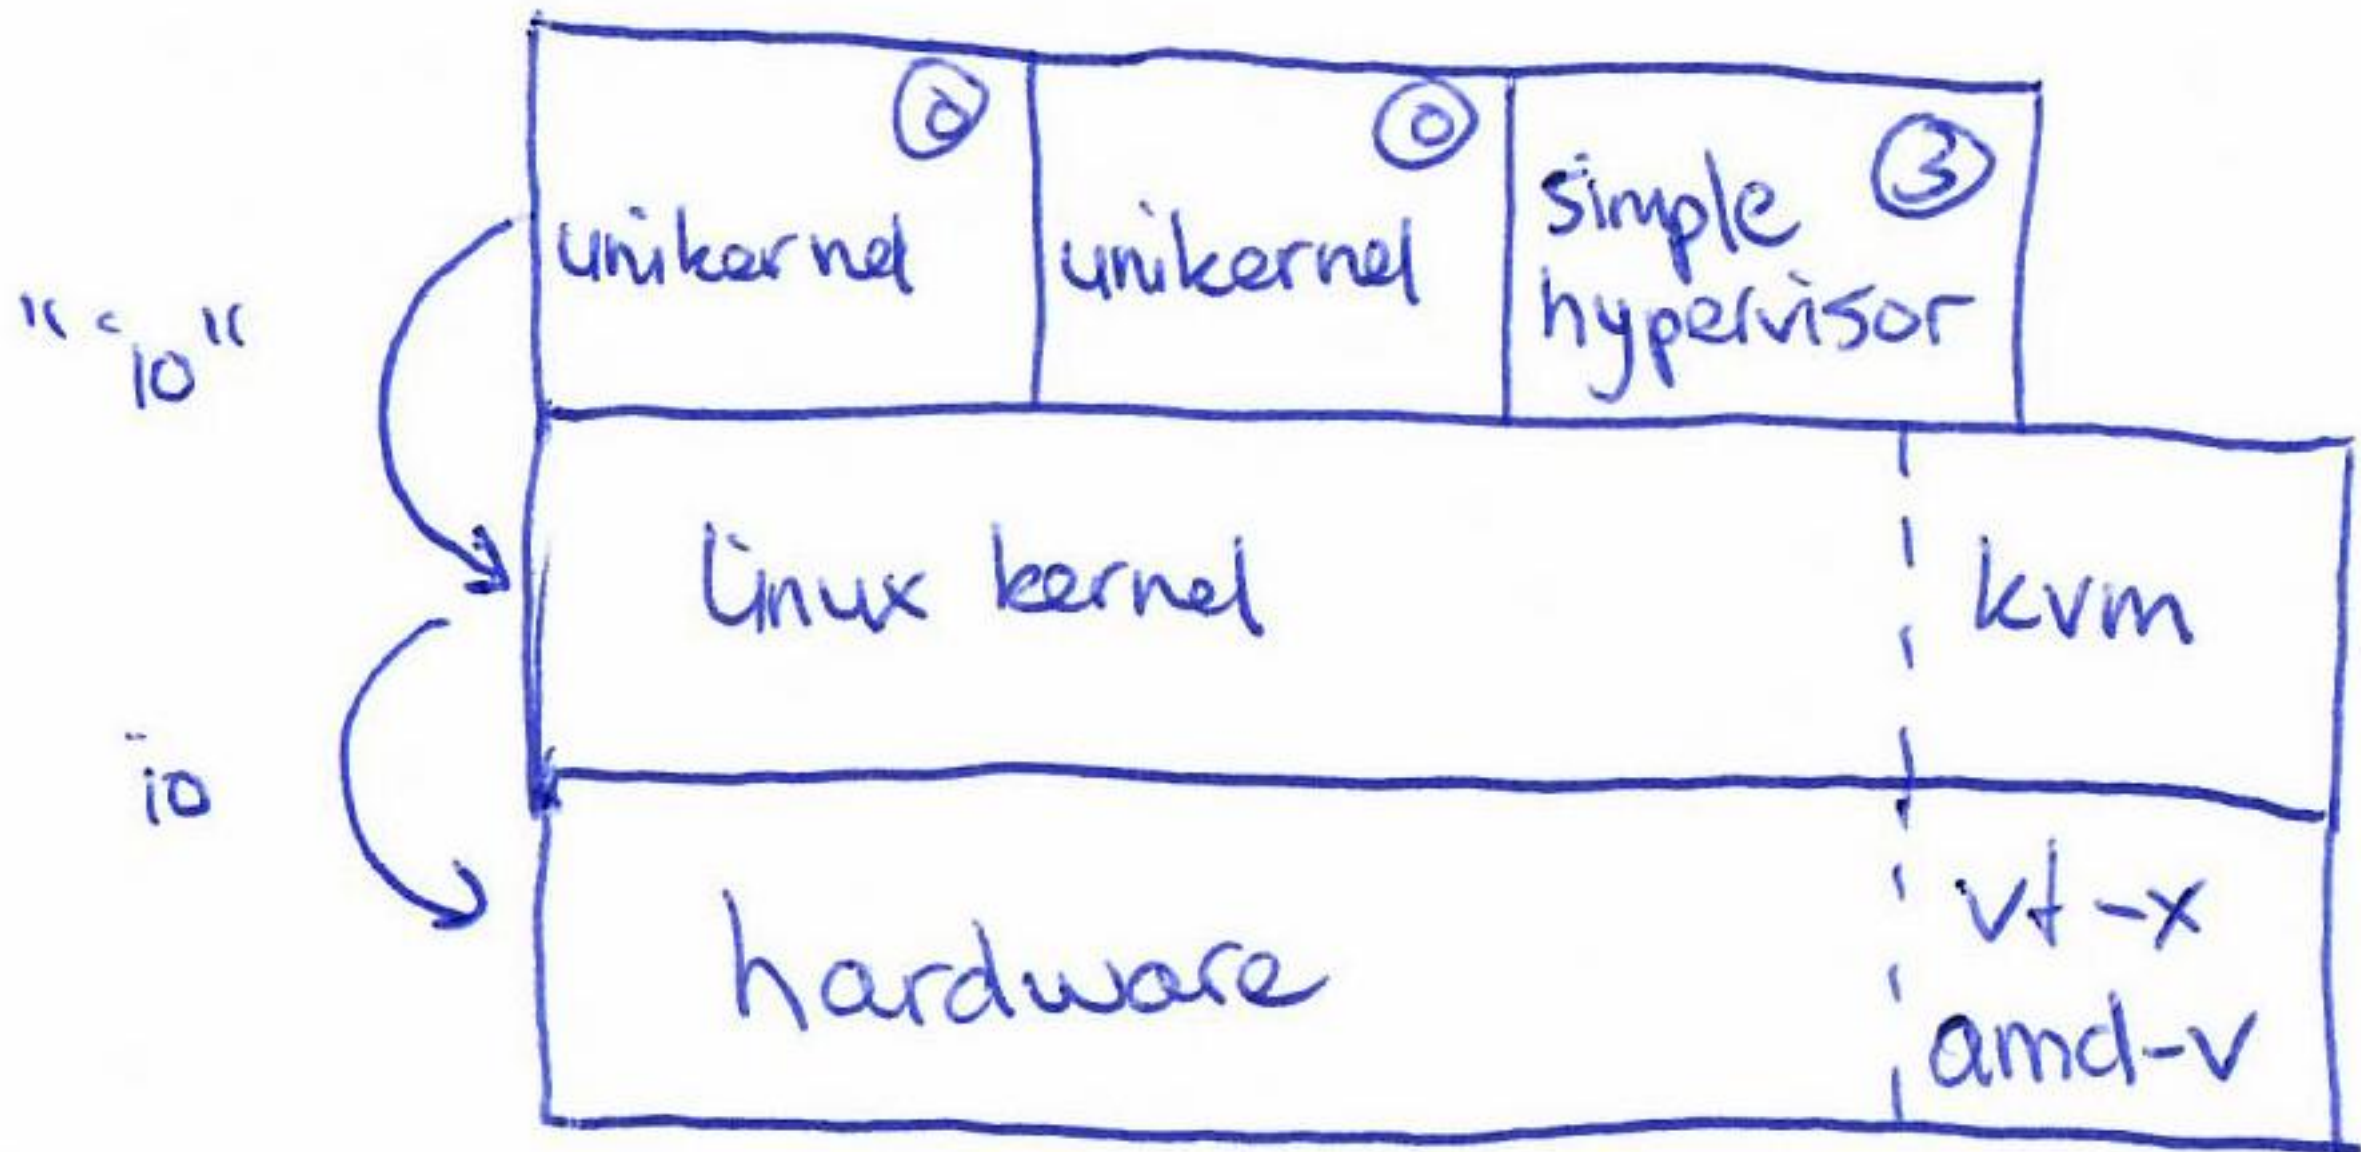 0
0
3
unikernel
unikernel
simple
hypervisor
"io"
linux kernel
kvm
io
hardware
vt-x
amd-v